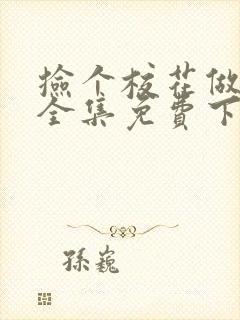 撿个校花做
全集免費下
孫巍